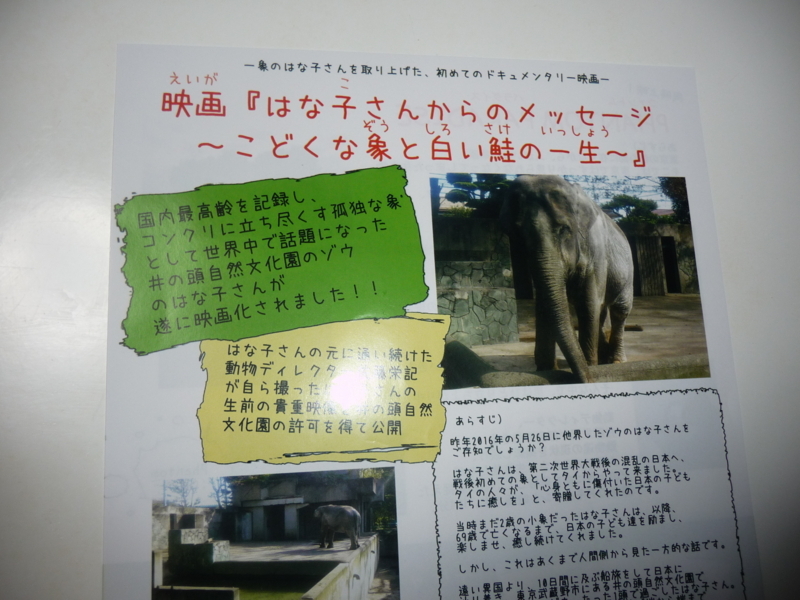 ー象のはな子さんを取り上げた、初めてのドキュメンタリー映画ー
えいが こ
映画『はな子さんからのメッセージ
ぞう しろ さけ いっしょう
～こどくな象と白い鮭の一生～』
国内最高齢を記録し、
コンクリに立ち尽くす孤独な象
として世界中で話題になった
井の頭自然文化園のゾウ
のはな子さんが
遂に映画化されました!!
はな子さんの元に通い続けた
動物ディレクター 栄記
が自ら撮った さんの
生前の貴重映像を の頭自然
文化園の許可を得て公開
あらすじ）
昨年2016年の5月26日に他界したゾウのはな子さんを
ご存知でしょうか？
はな子さんは、第二次世界大戦後の混乱の日本へ、
戦後初めての象としてタイからやって来ました。
タイの人々が、「心身ともに傷付いた日本の子ども
たちに癒しを」と、寄贈してくれたのです。
当時まだ2歳の小象だったはな子さんは、以降、
69歳で亡くなるまで、日本の子ども達を励まし、
楽しませ、癒し続けてくれました。
しかし、これはあくまで人間側から見た一方的な話です。
遠い異国より、10日間に及ぶ船旅をして日本に
東京武蔵野市にある井の頭自然文化園で
頭で過ごしたはな子さん。